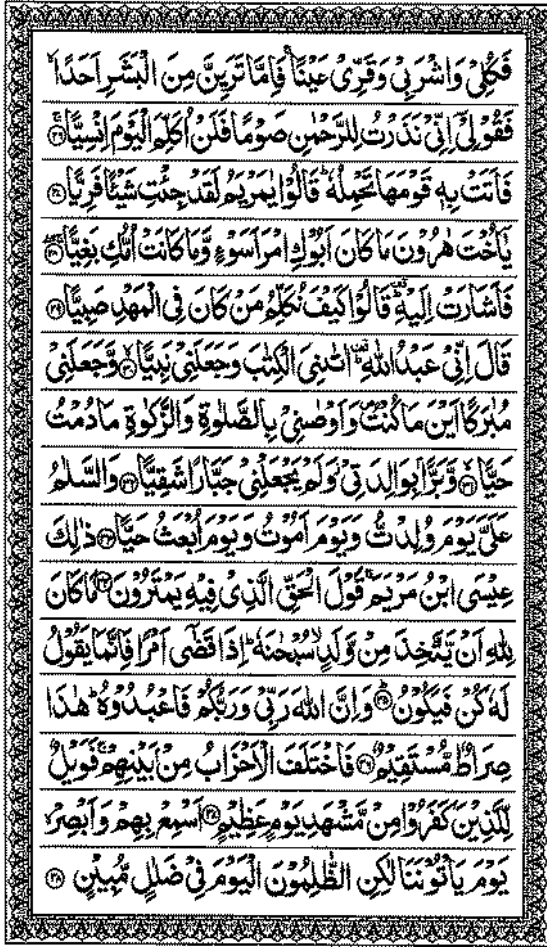 فَكُلِىْ وَاشْرَبِىْ وَقَرِّىْ عَيْنًا ۚ فَاِمَّا تَرَيِنَّ مِنَ الْبَشَرِ اَحَدًا ۙ
فَقُوْلِىْٓ اِنِّىْ نَذَرْتُ لِلرَّحْمٰنِ صَوْمًا فَلَنْ اُكَلِّمَ الْيَوْمَ اِنْسِيًّا ۚ ﴿۲۶﴾
فَاَتَتْ بِهٖ قَوْمَهَا تَحْمِلُهٗ ؕ قَالُوْا يٰمَرْيَمُ لَقَدْ جِئْتِ شَيْـًٔا فَرِيًّا ﴿۲۷﴾
يٰٓاُخْتَ هٰرُوْنَ مَا كَانَ اَبُوْكِ امْرَاَ سَوْءٍ وَّمَا كَانَتْ اُمُّكِ بَغِيًّا ﴿۲۸﴾
فَاَشَارَتْ اِلَيْهِ ؕ قَالُوْا كَيْفَ نُكَلِّمُ مَنْ كَانَ فِى الْمَهْدِ صَبِيًّا ﴿۲۹﴾
قَالَ اِنِّىْ عَبْدُ اللّٰهِ ؕ اٰتٰىنِىَ الْكِتٰبَ وَجَعَلَنِىْ نَبِيًّا ۙ ﴿۳۰﴾ وَّجَعَلَنِىْ
مُبٰرَكًا اَيْنَ مَا كُنْتُ وَاَوْصٰنِىْ بِالصَّلٰوةِ وَالزَّكٰوةِ مَا دُمْتُ
حَيًّا ﴿۳۱﴾ وَّبَرًّۢا بِوَالِدَتِىْ وَلَمْ يَجْعَلْنِىْ جَبَّارًا شَقِيًّا ﴿۳۲﴾ وَالسَّلٰمُ
عَلَىَّ يَوْمَ وُلِدْتُّ وَيَوْمَ اَمُوْتُ وَيَوْمَ اُبْعَثُ حَيًّا ﴿۳۳﴾ ذٰلِكَ
عِيْسَى ابْنُ مَرْيَمَ ۚ قَوْلَ الْحَقِّ الَّذِىْ فِيْهِ يَمْتَرُوْنَ ﴿۳۴﴾ مَا كَانَ
لِلّٰهِ اَنْ يَّتَّخِذَ مِنْ وَّلَدٍ ۙ سُبْحٰنَهٗ ؕ اِذَا قَضٰٓى اَمْرًا فَاِنَّمَا يَقُوْلُ
لَهٗ كُنْ فَيَكُوْنُ ؕ ﴿۳۵﴾ وَاِنَّ اللّٰهَ رَبِّىْ وَرَبُّكُمْ فَاعْبُدُوْهُ ؕ هٰذَا
صِرَاطٌ مُّسْتَقِيْمٌ ﴿۳۶﴾ فَاخْتَلَفَ الْاَحْزَابُ مِنْۢ بَيْنِهِمْ ۚ فَوَيْلٌ
لِّلَّذِيْنَ كَفَرُوْا مِنْ مَّشْهَدِ يَوْمٍ عَظِيْمٍ ﴿۳۷﴾ اَسْمِعْ بِهِمْ وَاَبْصِرْ ۙ
يَوْمَ يَاْتُوْنَنَا لٰكِنِ الظّٰلِمُوْنَ الْيَوْمَ فِىْ ضَلٰلٍ مُّبِيْنٍ ﴿۳۸﴾